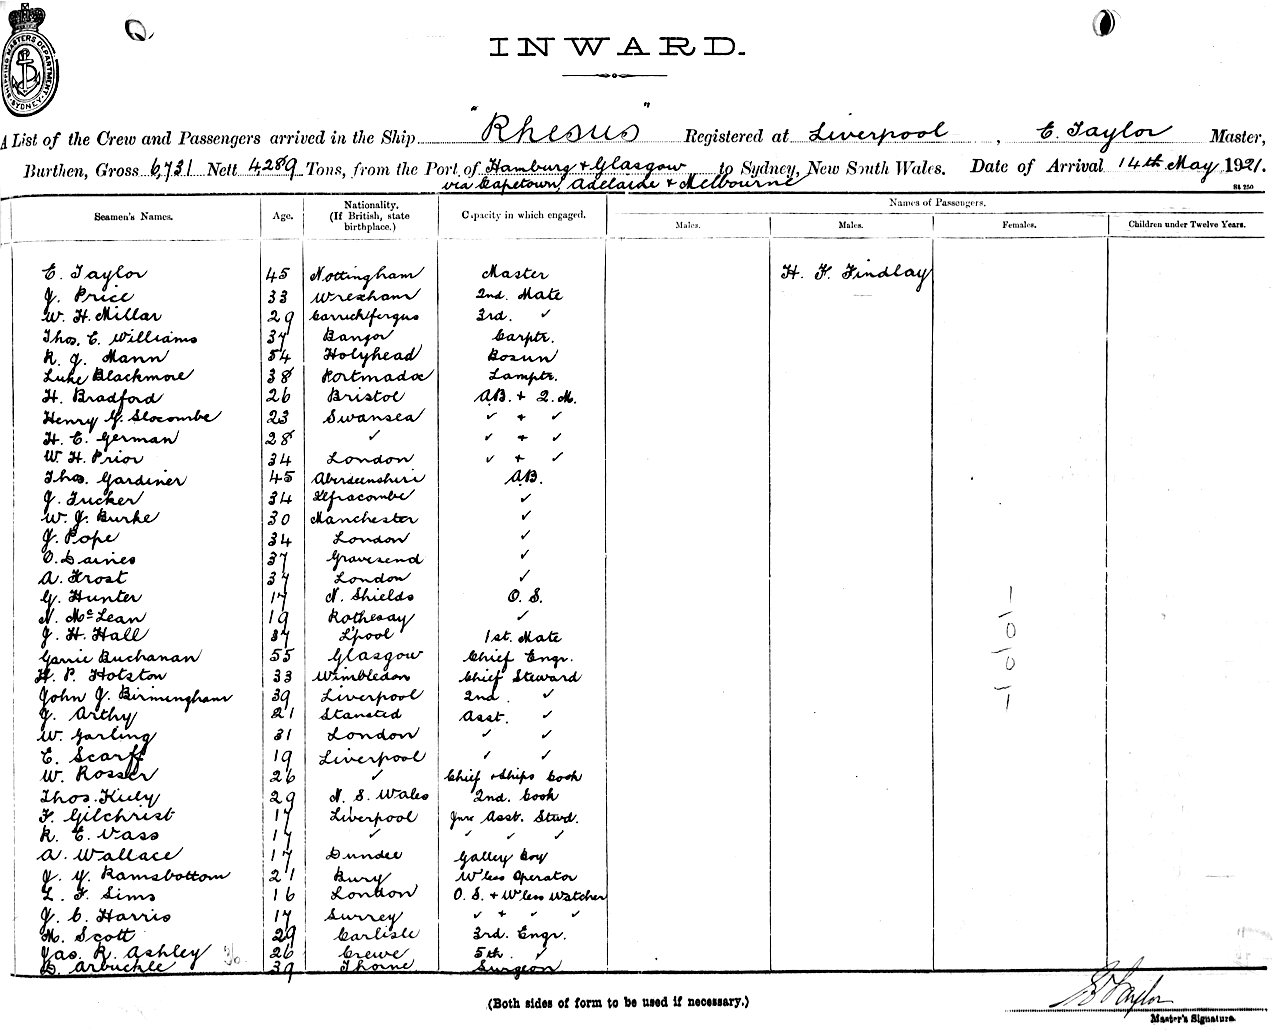 SHIPPING MASTERS DEPARTMENT SYDNEY
INWARD.
A List of the Crew and Passengers arrived in the Ship "Rhesus" Registered at Liverpool, E. Taylor Master,
Burthen, Gross 6,731 Nett 4,289 Tons, from the Port of Hamburg & Glasgow to Sydney, New South Wales. Date of Arrival 14th May 1921.
via Capetown, Adelaide & Melbourne
St 250
Seamen's Names. Age. Nationality. (If British, state birthplace.) Capacity in which engaged. Names of Passengers.
Males. Males. Females. Children under Twelve Years.
E. Taylor 45 Nottingham Master H. F. Findlay
J. Price 33 Wrexham 2nd. Mate
W. H. Millar 29 Carrickfergus 3rd. ✓
Thos. E. Williams 37 Bangor Carptr.
R. J. Mann 54 Holyhead Bosun
Luke Blackmore 38 Portmadoc Lamptr.
H. Bradford 26 Bristol AB. + Q.M.
Henry G. Slocombe 23 Swansea ✓ + ✓
H. E. German 28 ✓ ✓ + ✓
W. H. Prior 34 London ✓ + ✓
Thos. Gardiner 45 Aberdeenshire AB.
J. Tucker 34 Ilfracombe ✓
W. J. Burke 30 Manchester ✓
J. Pope 34 London ✓
O. Daines 37 Gravesend ✓
A. Frost 37 London ✓
G. Hunter 17 N. Shields O. S.
N. McLean 19 Rothesay ✓
J. H. Hall 37 L'pool 1st. Mate
Buchanan 55 Glasgow Chief Engr.
H. P. Hotston 33 Wimbledon Chief Steward
John J. Birmingham 39 Liverpool 2nd. ✓
J. Arthy 21 Stansted Asst. ✓
W. Garling 31 London ✓ ✓
E. Scarff 19 Liverpool ✓ ✓
W. Rosser 26 ✓ Chief & Ships Cook
Thos. Kiely 29 N. S. Wales 2nd. Cook
F. Gilchrist 17 Liverpool Jnr Asst. Stwd.
R. E. Vass 17 ✓ ✓ ✓ ✓
A. Wallace 17 Dundee Galley Boy
J. Y. Ramsbottom 21 Bury W'less Operator
L. F. Sims 16 London O. S. + W'less Watcher
J. C. Harris 17 Surrey ✓ + ✓ ✓
M. Scott 29 Carlisle 3rd. Engr.
Jas. R. Ashley 26 Crewe 5th. ✓
D. Arbuckle 39 Thorne Surgeon
36.
(Both sides of form to be used if necessary.)
E Taylor
Master's Signature.